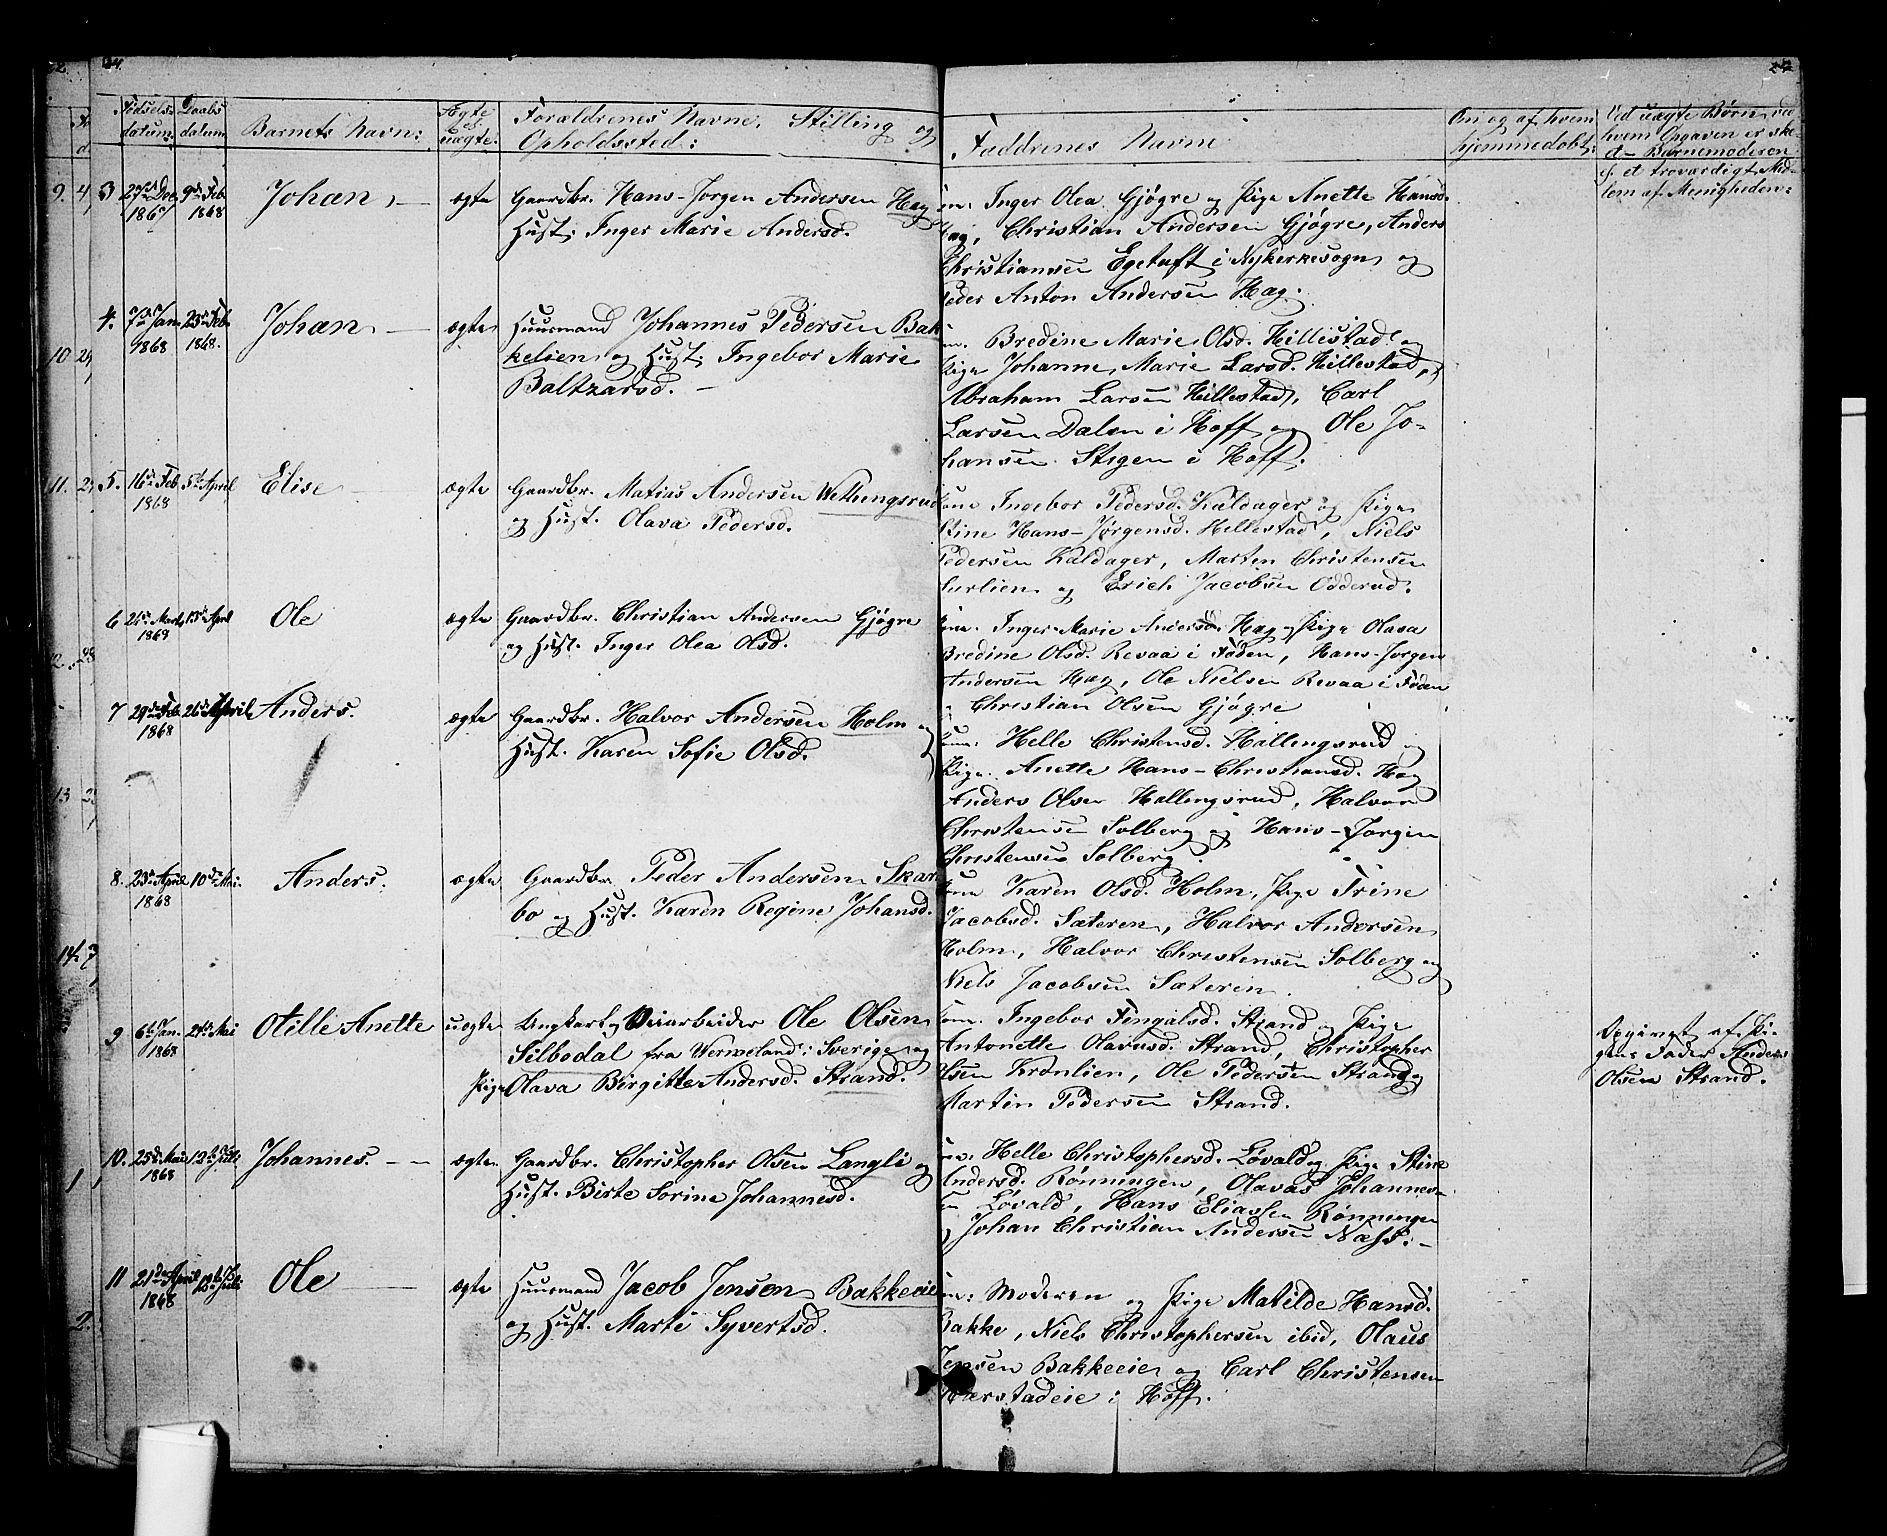 24.
Fødsels- datum: Daabs datum, Barnets Navn: Ægte el. uægte. Forældrenes Navne, Stilling og Opholdssted:
Faddrenes Navne
Om og af hvem hjemmedøbt:
Ved uægte Børn, ved
hvem Opgaven er ske-
et Barnemoderen
et troværdigt Med-
lem af Menigheden:
3 27de Dec 1867 9de Feb 1868 Johan ægte Gaardbr. Hans-Jørgen Andersen Hag
Hust: Inger Marie Andersd.
Inger Olea Gjøgre og Pige Anette Hansd.
Hag, Christian Andersen Gjøgre, Anders
Christiansen Egetuft i Nykirkesogn og
Peder Anton Andersen Hag.
4. 7de Jan 1868 23de Feb. 1868. Johan ægte Huusmand Johannes Pedersen Bak
kelien og Hust: Ingebor Marie
Baltzarsd.
Bredine Marie Olsd. Hillestad og
Pige Johanne Marie Larsd. Hillestad,
Abraham Larsen Hillestad, Carl
Larsen Dalen i Hoff og Ole Jo-
hansen Stigen i Hoff.
5. 16de Feb 1868 5te April Elise ægte Gaardbr. Matias Andersen Wethungsrud
og Hust. Olava Pedersd.
Kone Ingebor Pedersd. Kaldager og Pige
Stine Hans-Jørgensd. Hillestad, Niels
Pedersen Kaldager, Marten Christensen
og Erich Jacobsen Odderud.
6 Marts 1868 13de April Ole ægte Gaardbr. Christian Andersen Gjøgre
og Hust. Inger Olea Olsd.
Kone. Inger Marie Andersd. Hag, Pige Olava
Bredine Olsd. Revaa i Føden, Hans-Jørgen
Andersen Hag, Ole Nielsen Revaa i Føden
Christian Olsen Gjøgre
7 29de Feb 1868 26de April Anders. ægte Gaardbr. Halvor Andersen Holm og
Hust. Karen Sofie Olsd.
Kone: Helle Christensd. Hallingsrud og
Pige. Anette Hans-Christiansd. Hag
Anders Olsen Hallingsrud, Halvor
Christensen Solberg og Hans-Jørgen
Christensen Solberg.
8. 23de April 1868 10de Mai. Anders. ægte Gaardbr. Peder Andersen Skar
bo og Hust. Karen Regine Johansd.
Kone Karen Olsd. Holm, Pige Trine
Jacobsd. Sæteren, Halvor Andersen
Holm, Halvor Christensen Solberg og
Niels Jacobsen Sæteren.
9 6te Jan. 1868 24de Mai Otille Anette uægte Ungkarl og Veiarbeider Ole Olsen
Silbodal fra Wermeland i Sverige og
Pige Olava Birgitte Andersd. Strand.
Kone. Ingebor Fingalsd. Strand og Pige
Antonette Olavusd. Strand, Christopher
Olsen Kronlien, Ole Pedersen Strand og
Martin Pedersen Strand.
Opgivet af Pi-
gens Fader Anders
Olsen Strand.
10. 25de Mai 1868 12te Juli Johannes. ægte. Gaardbr. Christopher Olsen Langli og
Hust. Birte Sorine Johannesd.
Helle Christophersd. Løvald og Pige Stine
Andersd. Rønningen, Olavas Johannes-
sen Løvald, Hans Eliassen Rønningen
og Johan Christian Andersen Næss.
11 21de April 1868 12te Juli Ole ægte Huusmand Jacob Jensen Bakkeeie
og Hust. Marte Syvertsd.
Moderen og Pige Matilde Hansd.
Bakke, Niels Christophersen ibid, Olaus
Jensen Bakkeeie og Carl Christensen
i Hoff.